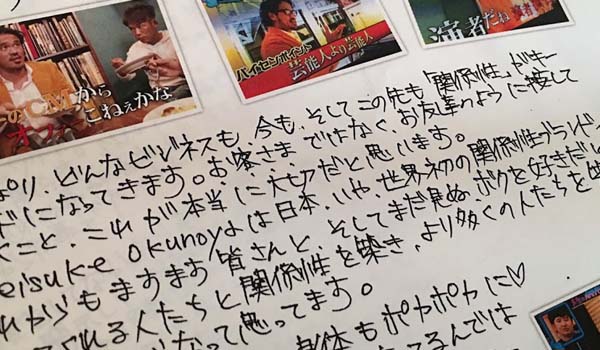 のCMから
オファー
こねぇかな
ハイセンポイント
芸能人より芸能人
演者だね
ぱり、どんなビジネスも今も、そしてこの先も「関係性」がキー
ドになってきます。お客さまではなく、お友達のように接して
くこと、これが本当に大切だと思います。
eisuke okunoyaは日本、いや、世界初の関係性ブランド
れからもますます皆さんと、そしてまだ見ぬ、ボクを好きだい
くれる人たちと関係性を築き、より多くの人たちを
なって思ってます。
身体もポヤポヤに♡
てるんでは